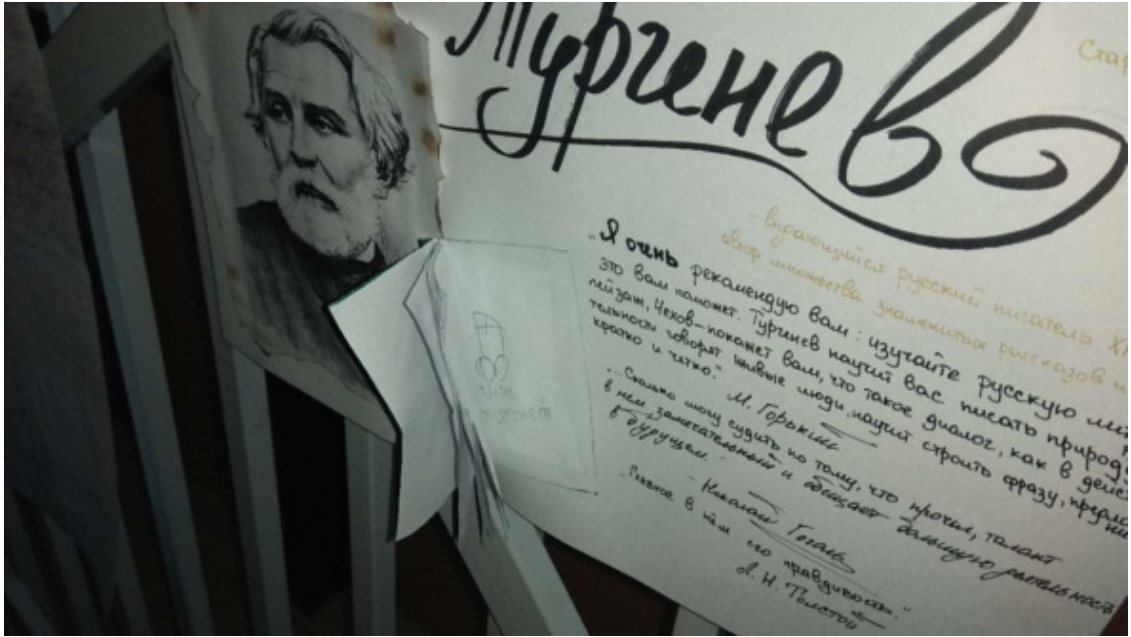 Тургенев
Стар
- выдающийся русский писатель XI
автор множества знаменитых рассказов и
"Я очень рекомендую вам: изучайте русскую лит
это вам поможет. Тургенев научит вас писать природу
пейзаж, Чехов-покажет вам, что такое диалог, как в дейст
тельности говорят живые люди, научит строить фразу, предло
кратко и четко."
М. Горький
"Сколько могу судить по тому, что прочел, талант
в нем замечательный и обещает большую деятельность
в будущем."
- Николай Гоголь
"Главное в нём его правдивость."
Л. Н. Толстой
Тургенев